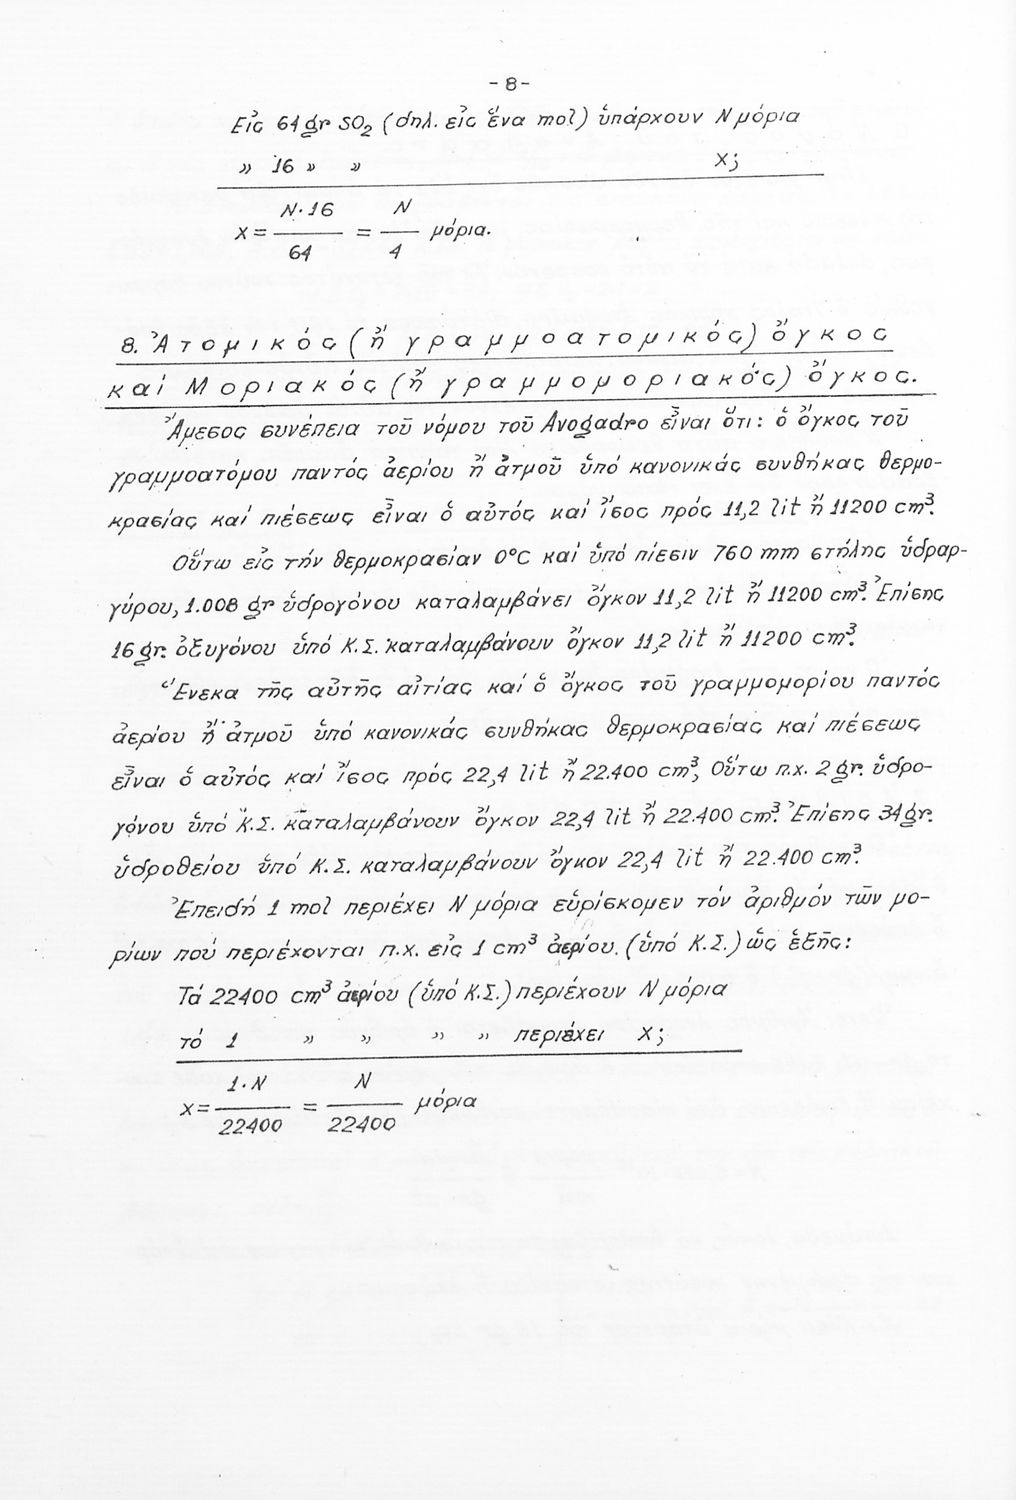 -8-
Εἰς 64 gr SO2 (δηλ. εἰς ἕνα mol) ὑπάρχουν N μόρια
" 16 " " x;
x = N·16 / 64 = N / 4 μόρια.
8. Ἀτομικός (ἤ γραμμοατομικός) ὄγκος
καί Μοριακός (ἤ γραμμομοριακός) ὄγκος.
Ἄμεσος συνέπεια τοῦ νόμου τοῦ Avogadro εἶναι ὅτι: ὁ ὄγκος τοῦ
γραμμοατόμου παντός ἀερίου ἤ ἀτμοῦ ὑπό κανονικάς συνθήκας θερμο-
κρασίας καί πιέσεως εἶναι ὁ αὐτός καί ἴσος πρός 11,2 lit ἤ 11200 cm³.
Οὕτω εἰς τήν θερμοκρασίαν 0°C καί ὑπό πίεσιν 760 mm στήλης ὑδραρ-
γύρου, 1.008 gr ὑδρογόνου καταλαμβάνει ὄγκον 11,2 lit ἤ 11200 cm³. Ἐπίσης
16 gr. ὀξυγόνου ὑπό Κ.Σ. καταλαμβάνουν ὄγκον 11,2 lit ἤ 11200 cm³.
Ἕνεκα τῆς αὐτῆς αἰτίας καί ὁ ὄγκος τοῦ γραμμομορίου παντός
ἀερίου ἤ ἀτμοῦ ὑπό κανονικάς συνθήκας θερμοκρασίας καί πιέσεως
εἶναι ὁ αὐτός καί ἴσος πρός 22,4 lit ἤ 22.400 cm³, Οὕτω π.χ. 2 gr. ὑδρο-
γόνου ὑπό Κ.Σ. καταλαμβάνουν ὄγκον 22,4 lit ἤ 22.400 cm³. Ἐπίσης 34 gr.
ὑδροθείου ὑπό Κ.Σ. καταλαμβάνουν ὄγκον 22,4 lit ἤ 22.400 cm³.
Ἐπειδή 1 mol περιέχει N μόρια εὑρίσκομεν τόν ἀριθμόν τῶν μο-
ρίων πού περιέχονται π.χ. εἰς 1 cm³ ἀερίου. (ὑπό Κ.Σ.) ὡς ἑξῆς:
Τά 22400 cm³ ἀερίου (ὑπό Κ.Σ.) περιέχουν N μόρια
τό 1 " " " " περιέχει x;
x = 1·N / 22400 = N / 22400 μόρια